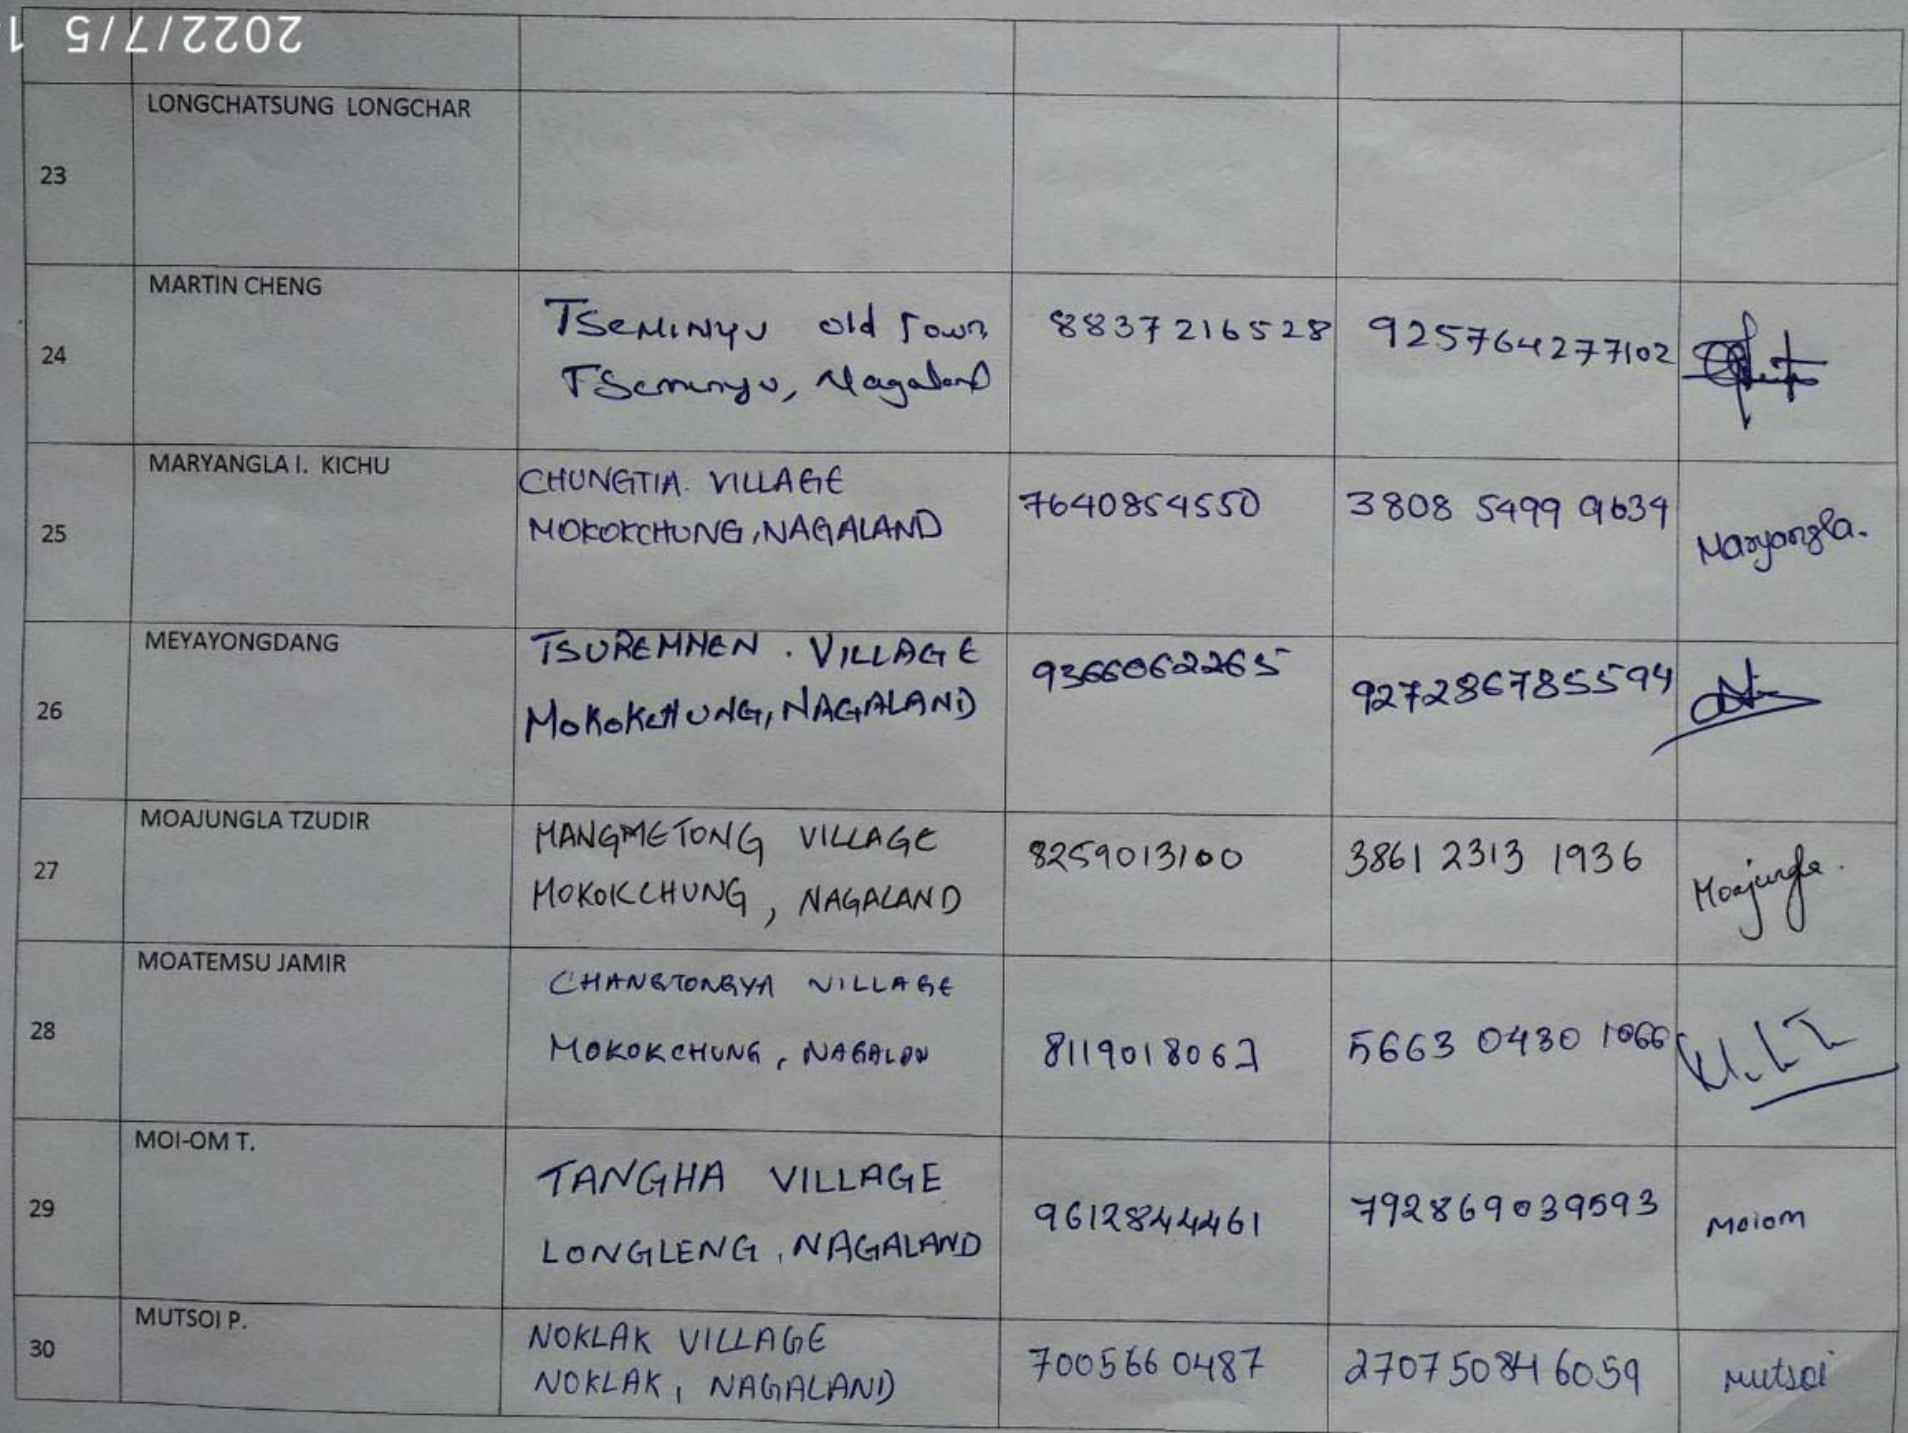 2022/7/5 1
LONGCHATSUNG LONGCHAR
23
MARTIN CHENG
24
Tseminyu old Town,
Tseminyu, Nagaland
8837216528
925764277102
MARYANGLA I. KICHU
25
CHUNGTIA VILLAGE
MOKOKCHUNG, NAGALAND
7640854550
3808 5499 9634
Maryangla.
MEYAYONGDANG
26
TSUREMMEN . VILLAGE
MOKOKCHUNG, NAGALAND
9366062265
927286785594
MOAJUNGLA TZUDIR
27
MANGMETONG VILLAGE
MOKOKCHUNG, NAGALAND
8259013100
3861 2313 1936
Moajungla.
MOATEMSU JAMIR
28
CHANGTONGYA VILLAGE
MOKOKCHUNG,
5663 0430 1066
MOI-OM T.
29
TANGHA VILLAGE
LONGLENG, NAGALAND
9612844461
792869039593
Moiom
MUTSOI P.
30
NOKLAK VILLAGE
NOKLAK, NAGALAND
7005660487
270750846059
Mutsoi